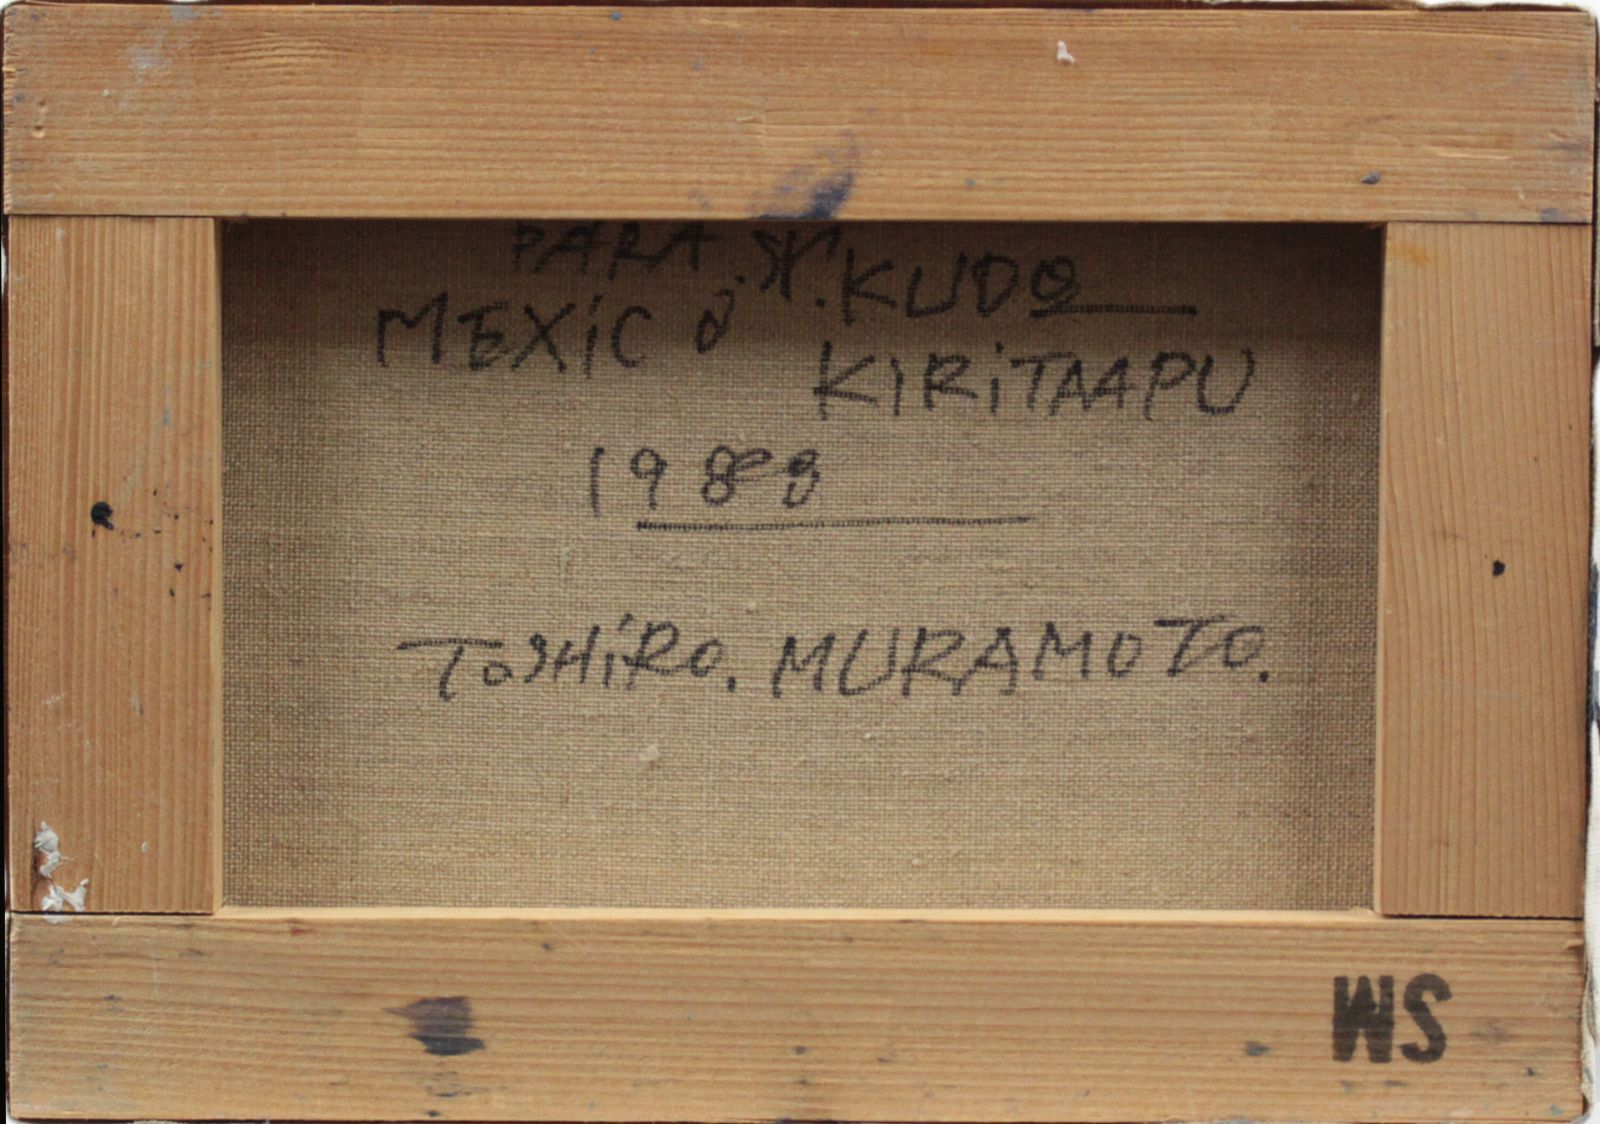 PARA .Ж.KUDO
MEXiCO
KIRiTAAPU
1988
ToSHiRo. MURAMOTO.
WS